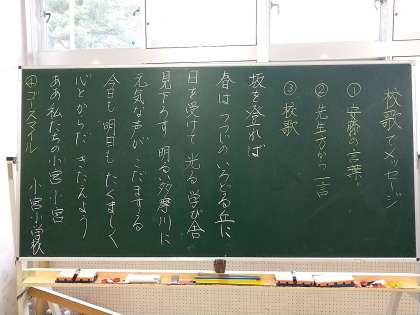 校歌でメッセージ
① 安藤の言葉
② 先生方から一言
③ 校歌
坂を登れば
春は つつじのいろどる丘に
日を受けて 光る 学び舎
見下ろす 明るい多摩川に
元気な声が こだまする
今日も 明日も たくましく
心とからだ きたえよう
ああ 私たちの小宮 小宮
小宮小学校
④ ゴースマイル